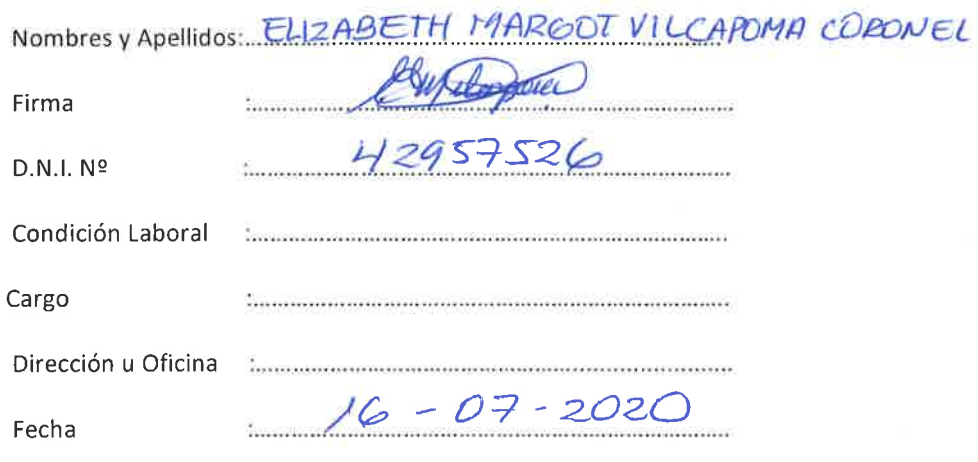 Nombres y Apellidos: ELIZABETH MARGOT VILCAPOMA CORONEL
Firma :
D.N.I. Nº : 42957526
Condición Laboral :
Cargo :
Dirección u Oficina :
Fecha : 16 - 07 - 2020